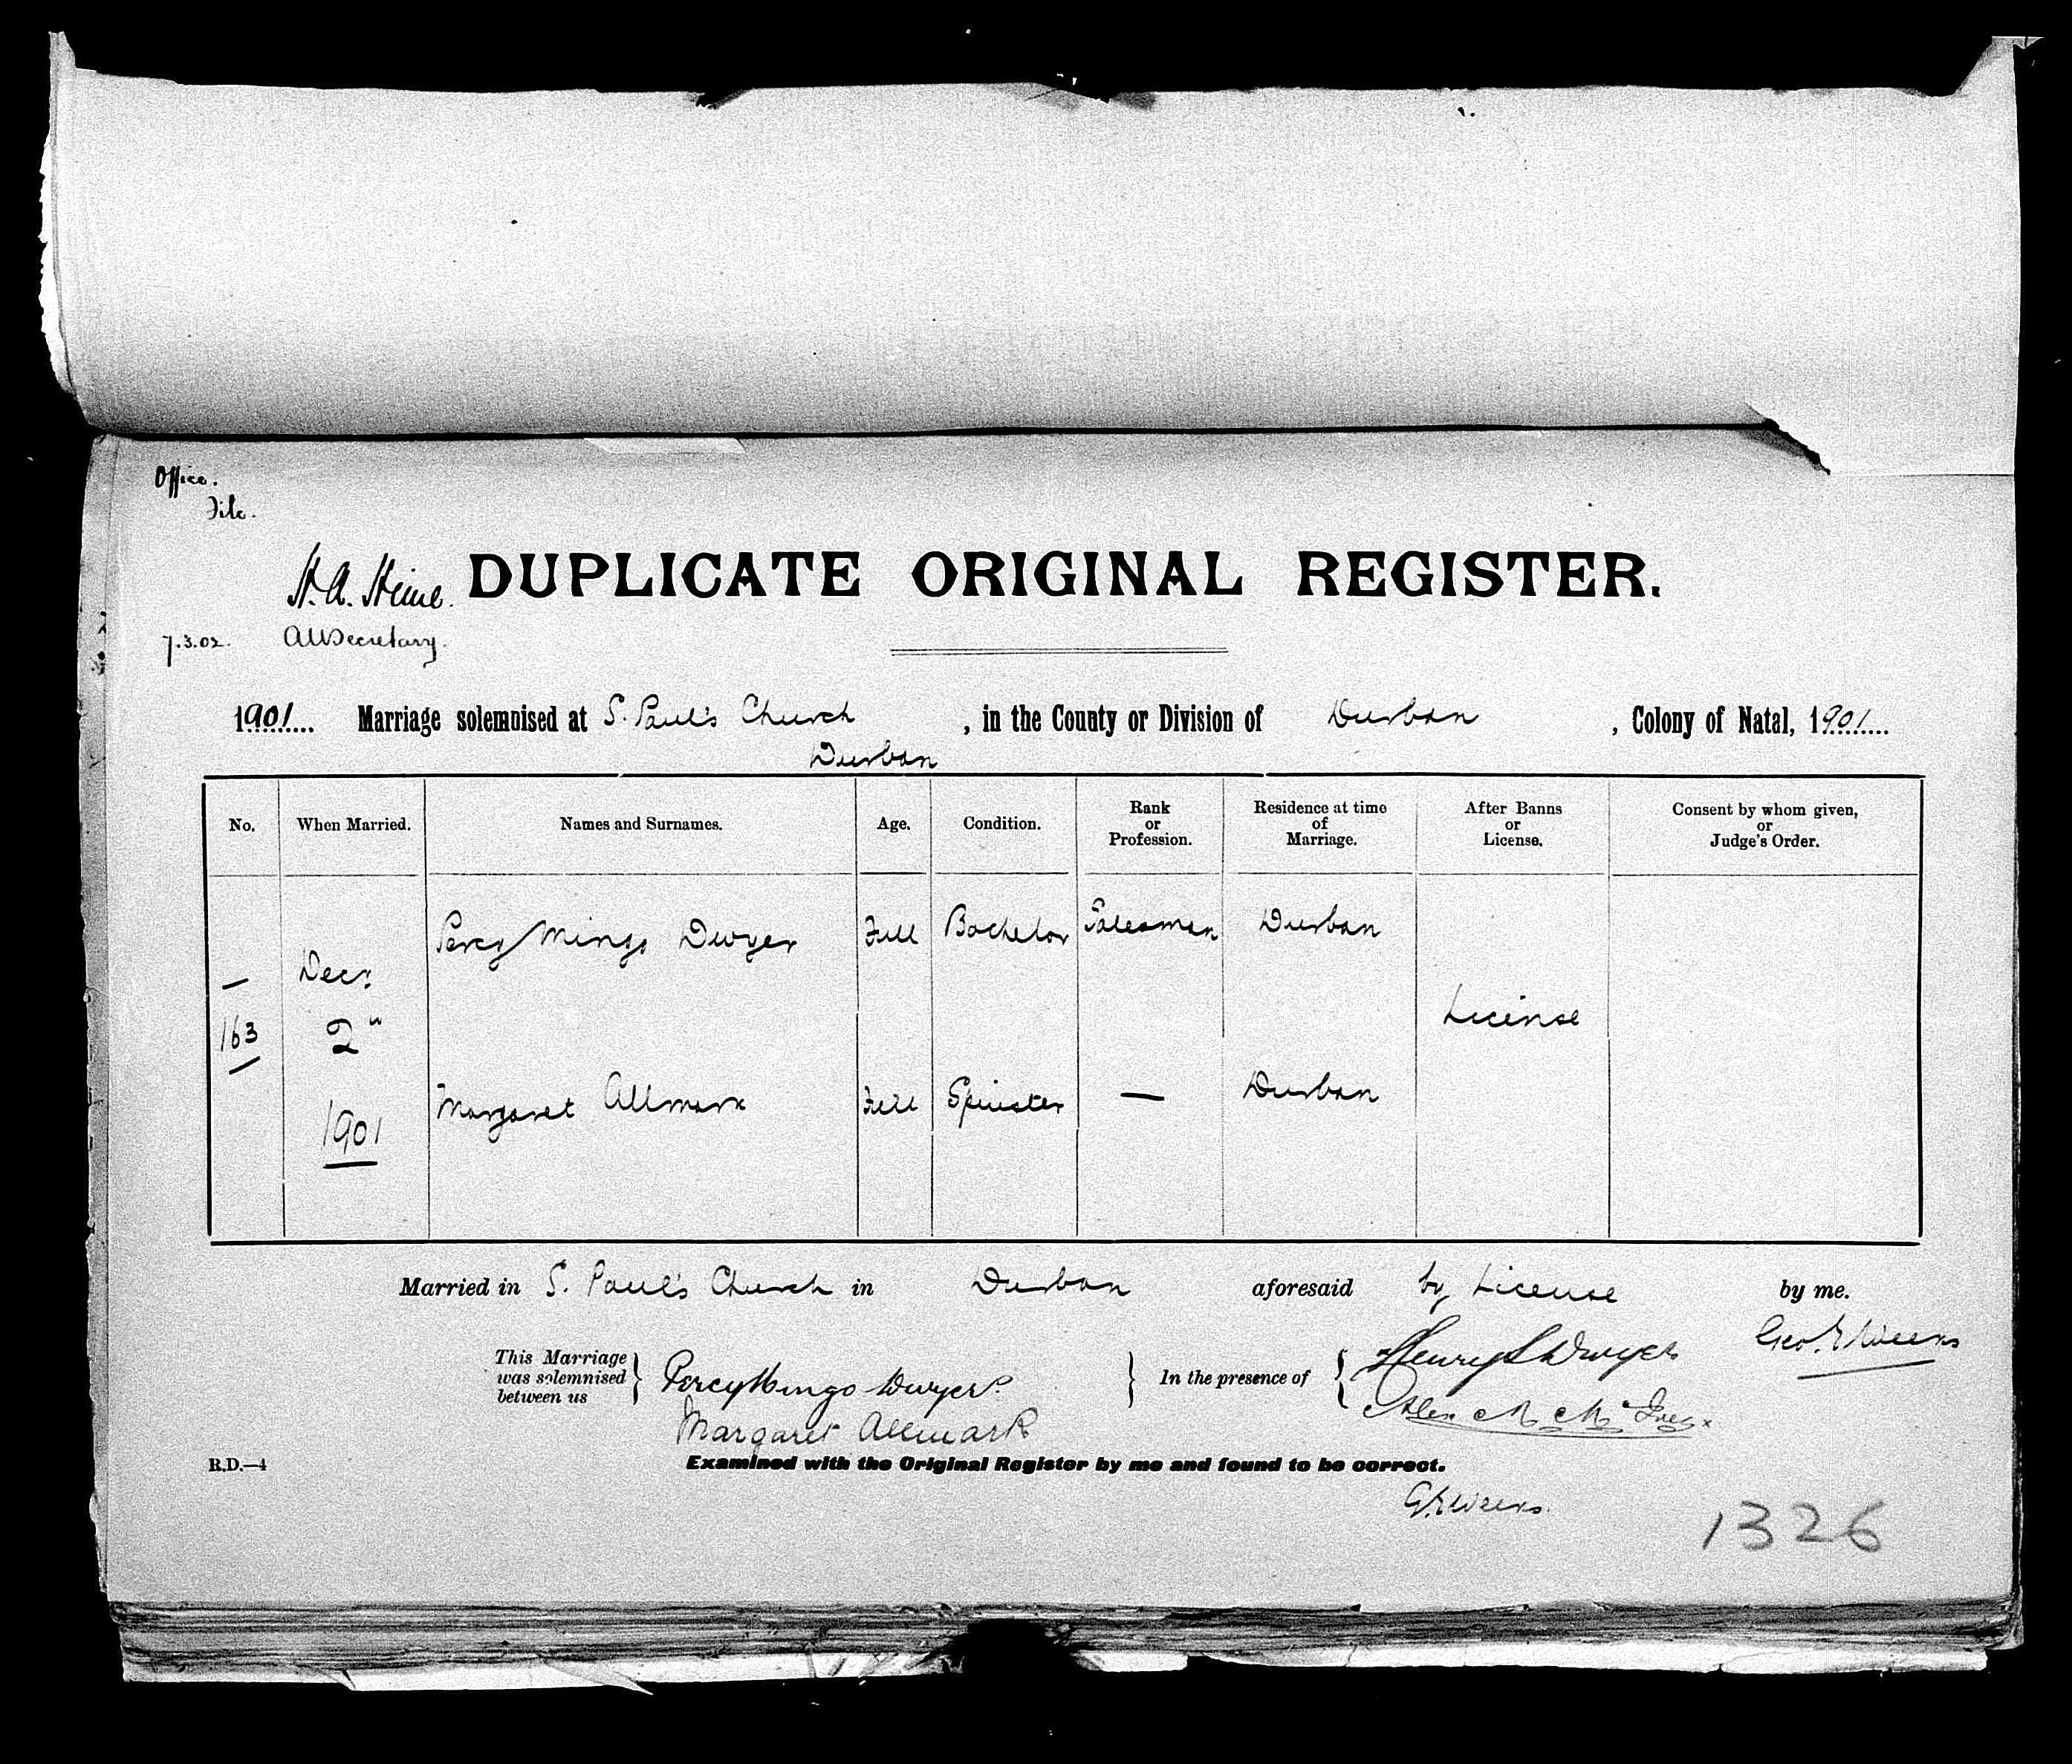 Office.
File.
DUPLICATE ORIGINAL REGISTER.
H. A. Hime.
7.3.02. Secretary.
1901 Marriage solemnised at S. Paul's Church Durban, in the County or Division of Durban, Colony of Natal, 1901
No. When Married. Names and Surnames. Age. Condition. Rank or Profession. Residence at time of Marriage. After Banns or License. Consent by whom given, or Judge's Order.
Percy Mingo Dwyer Full Bachelor Salesman Durban
— Decr.
163 2" License
Margaret Allmark Full Spinster — Durban
1901
Married in S. Paul's Church in Durban aforesaid by License by me.
Geo. E. Weeks
This Marriage was solemnised between us } Percy Mingo Dwyer. } In the presence of { Henry Dwyer
Margaret Allmark Alex
R.D.—4 Examined with the Original Register by me and found to be correct.
G.E. Weeks.
1326